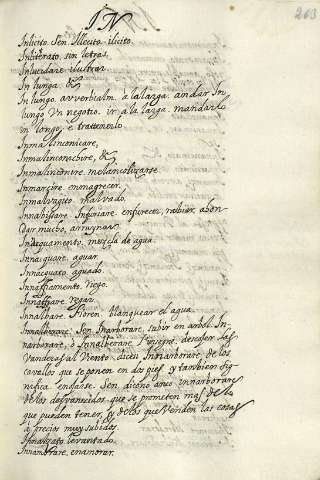 203
IN
Inlicito, Sen Illecito. ilicito.
Inliterato, sin letras.
Inlucidare. ilustrar.
In lunga. &c
In lungo. avverbialm. a la larga. andar In
lungo Un negotio. ir à la larga. mandarlo
in longo, e trattenerlo
Inmalinconicare,
Inmalinconichire, &c
Inmalinconire. melancolizarse.
Inmarcire. enmagrecer.
Inmalvagito. malvado.
Innabissare. Infuriare. enfurecer, rebiuir, abon
dar mucho, arruynar.
Innaquamento, mezcla de agua.
Innaquare. aguar
Innacquato. aguado.
Innaffiamento. riego.
Innaffiare. regar.
Innalbare. Floren. blanquear el agua.
Innalberare. Sen Inarborare. subir en arbol. In-
narborare, ò Innalberare l'insegne. descoger las
Vanderas al Viento. dicen Innarborare, de los
cavallos que se ponen en dos pies. y tambien sig
nifica enojarse. Sen dicono anco innarborare
de los desvanecidos que se prometen mas de lo
que pueden tener, y de los que venden las cosas
a precios muy subidos.
Innalzato. levantado.
Innamorare, enamorar.